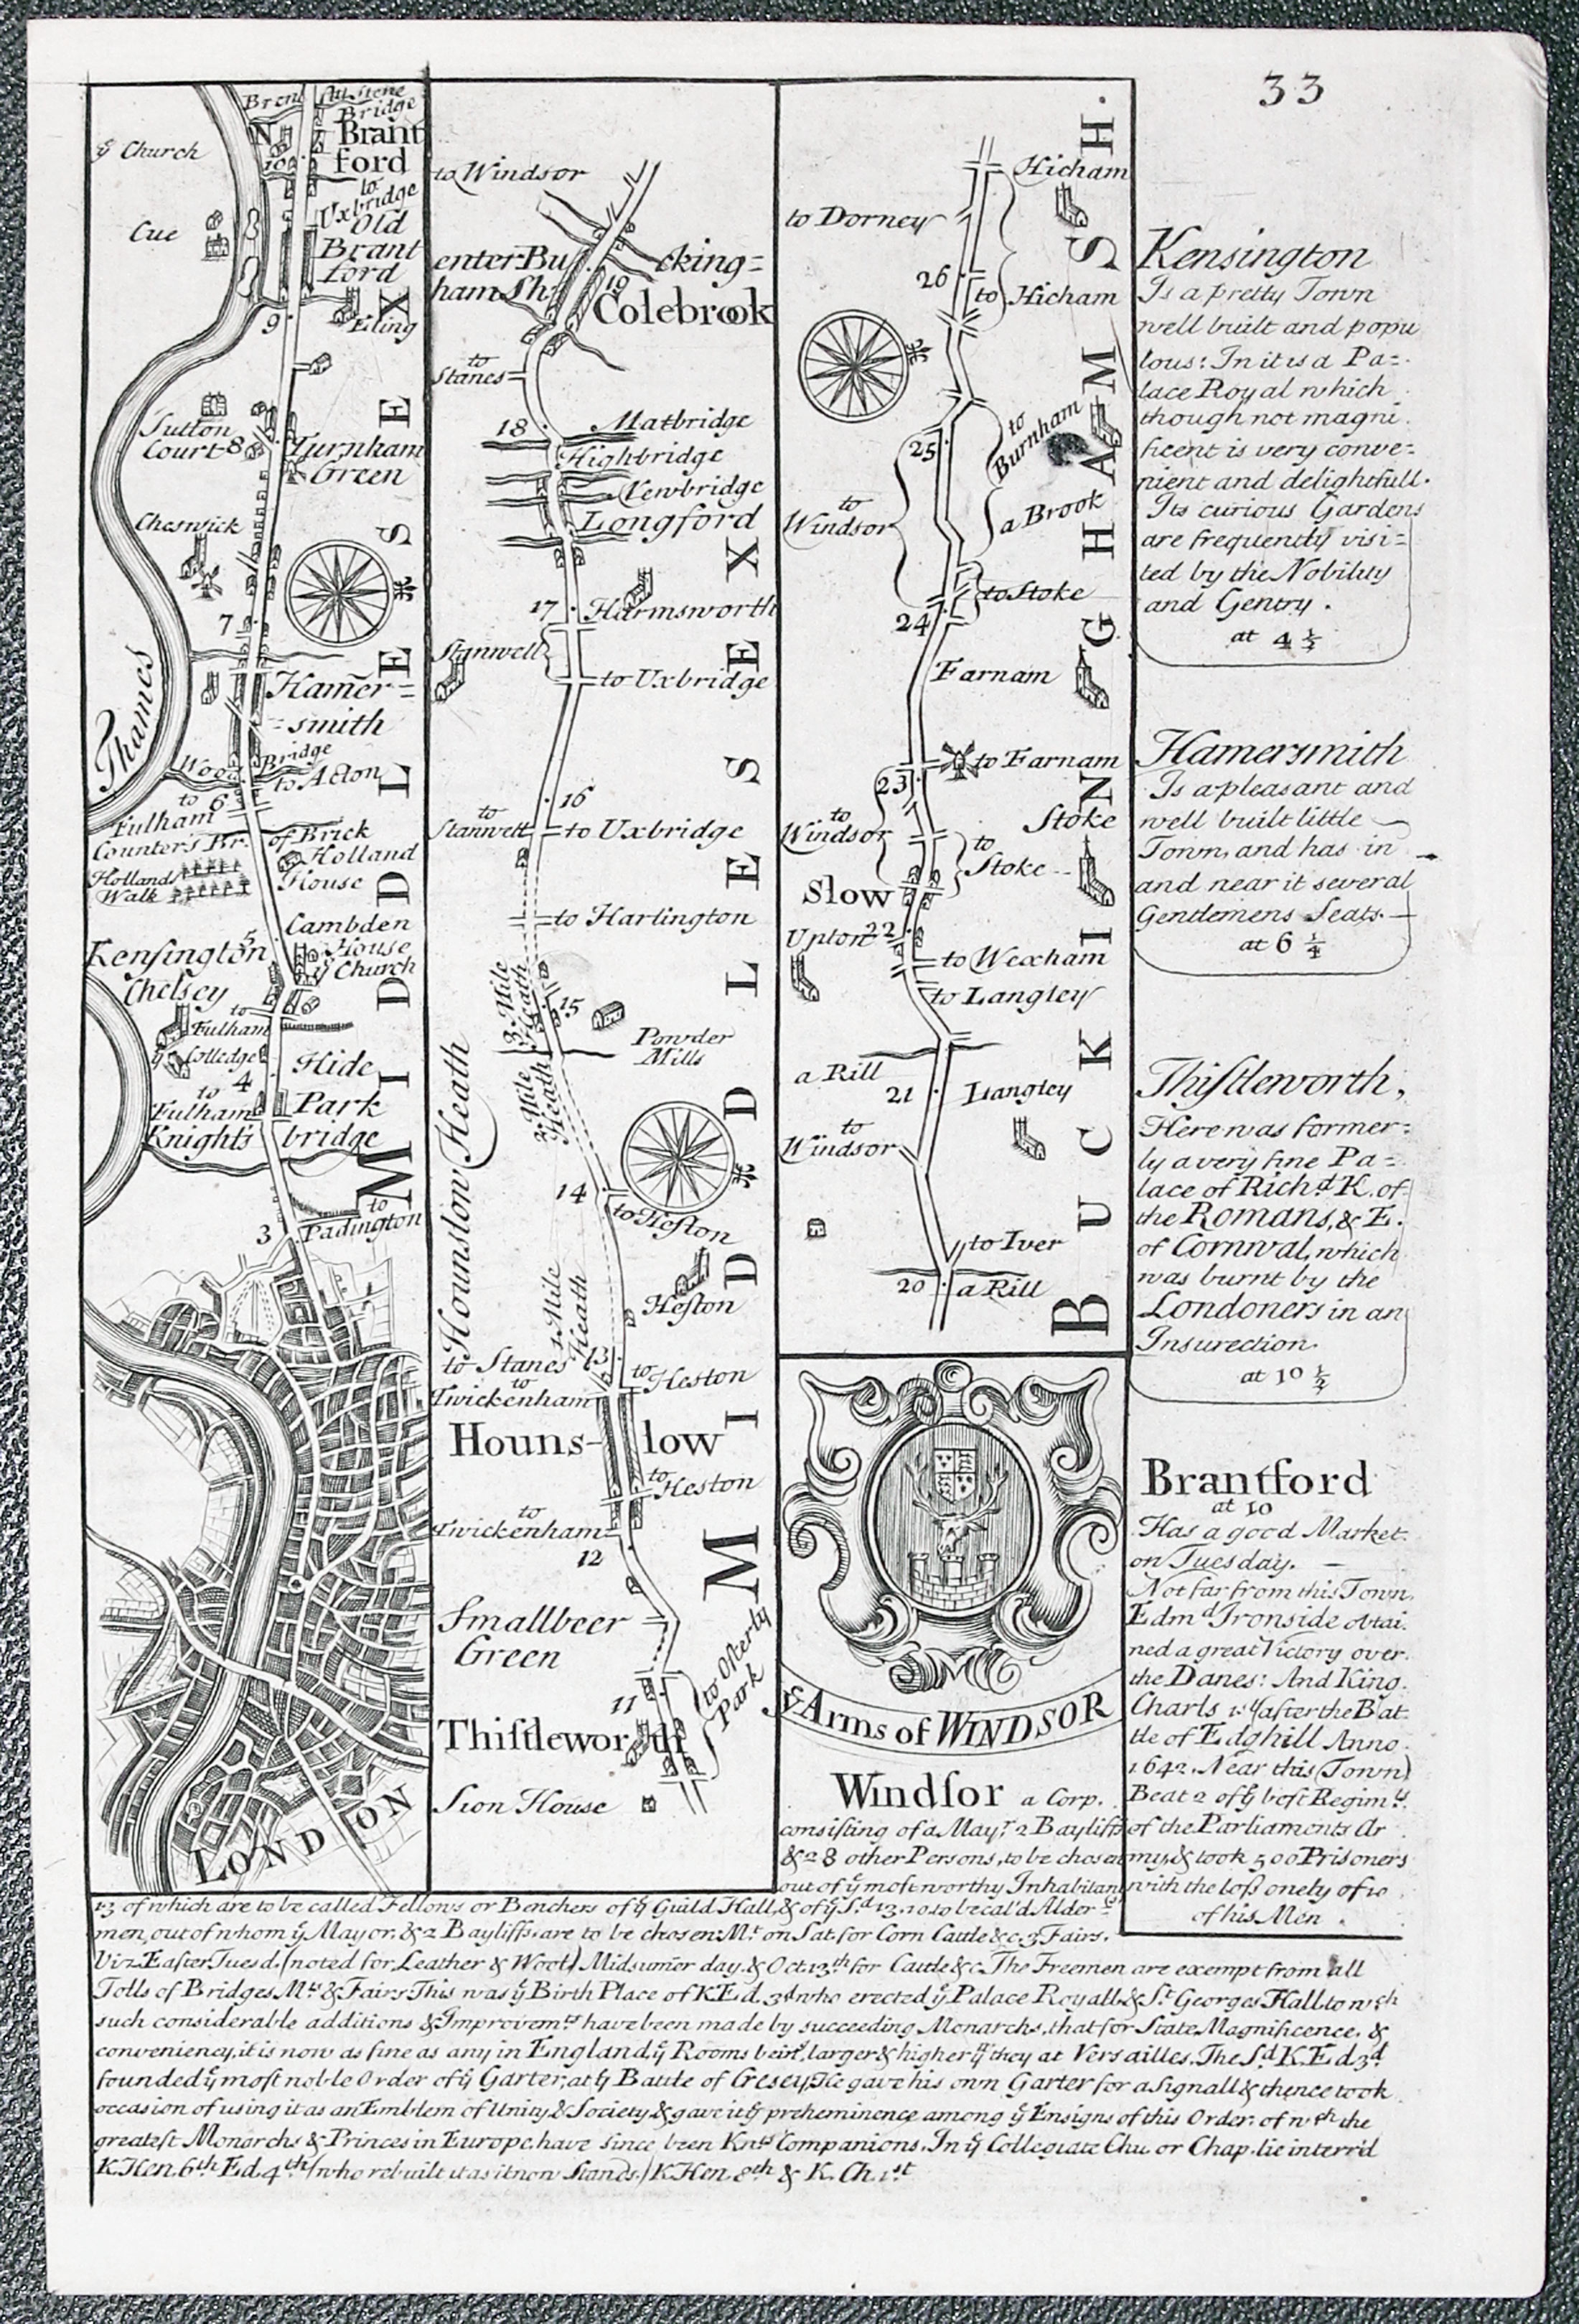 33
Bren Stone
Bridge
N
Brant
ford
10
ẏ Church
to
Uxbridge
Old
Brant
ford
Cue
9
Eling
Sutton
Court
8
Turnham
Green
Cheswick
7
Hamer=
=smith
Thames
Wood Bridge
to Acton
to
Fulham
6
Counter's Br. of Brick
Holland
House
Hollands
Walk
Cambden
House
5
Kensington
ẏ
Church
Chelsey
to
Fulham
ẏ Colledge
Hide
Park
4
to
Fulham
Knights bridge
to
Padington
3
LONDON
MIDDLESEX
to Windsor
enter Bu cking=
ham Sh:
19
Colebrook
to
Stanes
18
Matbridge
Highbridge
Newbridge
Longford
17
Harmsworth
Stanwell
to Uxbridge
16
to
Stanwell
to Uxbridge
to Harlington
3. Mile
Heath
15
Powder
Mills
2. Mile
Heath
Hounslow Heath
14
to Heston
1. Mile
Heath
Heston
to Stanes
13
to
Heston
to
Twickenham
Houns- low
to
Heston
to
Twickenham
12
Smallbeer
Green
to Osterly
Park
11
Thistleworth
Sion House
MIDDLESEX
Hicham
to Dorney
26
to Hicham
to
Burnham
25
a Brook
to
Windsor
to Stoke
24
Farnam
to Farnam
23
Stoke
to
Windsor
to
Stoke
Slow
22
Upton
to Wexham
to Langley
a Rill
21
Langley
to
Windsor
to Iver
20
a Rill
BUCKINGHAMSH.
ẏ Arms of WINDSOR
Kensington
Is a pretty Town
well built and popu
lous: In it is a Pa=
lace Royal which
though not magni
ficent is very conve=
nient and delightfull.
Its curious Gardens
are frequently visi=
ted by the Nobility
and Gentry.
at 4 ½
Hamersmith
Is a pleasant and
well built little
Town, and has in
and near it several
Gentlemens Seats.
at 6 ¼
Thistleworth,
Here was former=
ly a very fine Pa=
lace of Richd. K. of
the Romans, & E.
of Cornwal, which
was burnt by the
Londoners in an
Insurection.
at 10 ½
Brantford
at 10
Has a good Market
on Tuesday.
Not far from this Town
Edmd. Ironside obtai
ned a great Victory over
the Danes: And King
Charls 1st (after the Bat
tle of Edghill Anno
1642. Near this Town)
Beat 2 of ẏ best Regimts.
of the Parliaments Ar
my, & took 500 Prisoners
with the loss onely of 10
of his Men.
Windsor a Corp.
consisting of a Mayr. 2 Bayliffs
& 28 other Persons, to be chosen
out of ẏ most worthy Inhabitants
13 of which are to be called Fellows or Benchers of ẏ Guild Hall, & of ẏ Sd. 13. 10 to be cal'd Alder=
men, out of whom ẏ Mayor, & 2 Bayliffs are to be chosen: Mt. on Sat. for Corn Cattle &c. 3 Fairs.
Viz. Easter Tuesd. (noted for Leather & Wool) Midsumer day, & Oct. 13th for Cattle &c. The Freemen are exempt from all
Tolls of Bridges Mts. & Fairs This was ẏ Birth Place of K. Ed. 3d who erected ẏ Palace Royall & St. Georges Hall to wch
such considerable additions & Improvemts have been made by succeeding Monarchs, that for State Magnificence, &
conveniency, it is now as fine as any in England, ẏ Rooms being larger & higher yn they at Versailles. The Sd. K. Ed 3d
founded ẏ most noble Order of ẏ Garter, at ẏ Battle of Cresey, He gave his own Garter for a Signall & thence took
occasion of using it as an Emblem of Unity & Society & gave it ẏ preheminence among ẏ Ensigns of this Order of wch the
greatest Monarchs & Princes in Europe have since been Knts Companions. In ẏ Collegiate Chu or Chap. lie interr'd
K. Hen. 6th Ed. 4th (who rebuilt it as it now Stands) K. Hen 8th & K. Ch. 1st